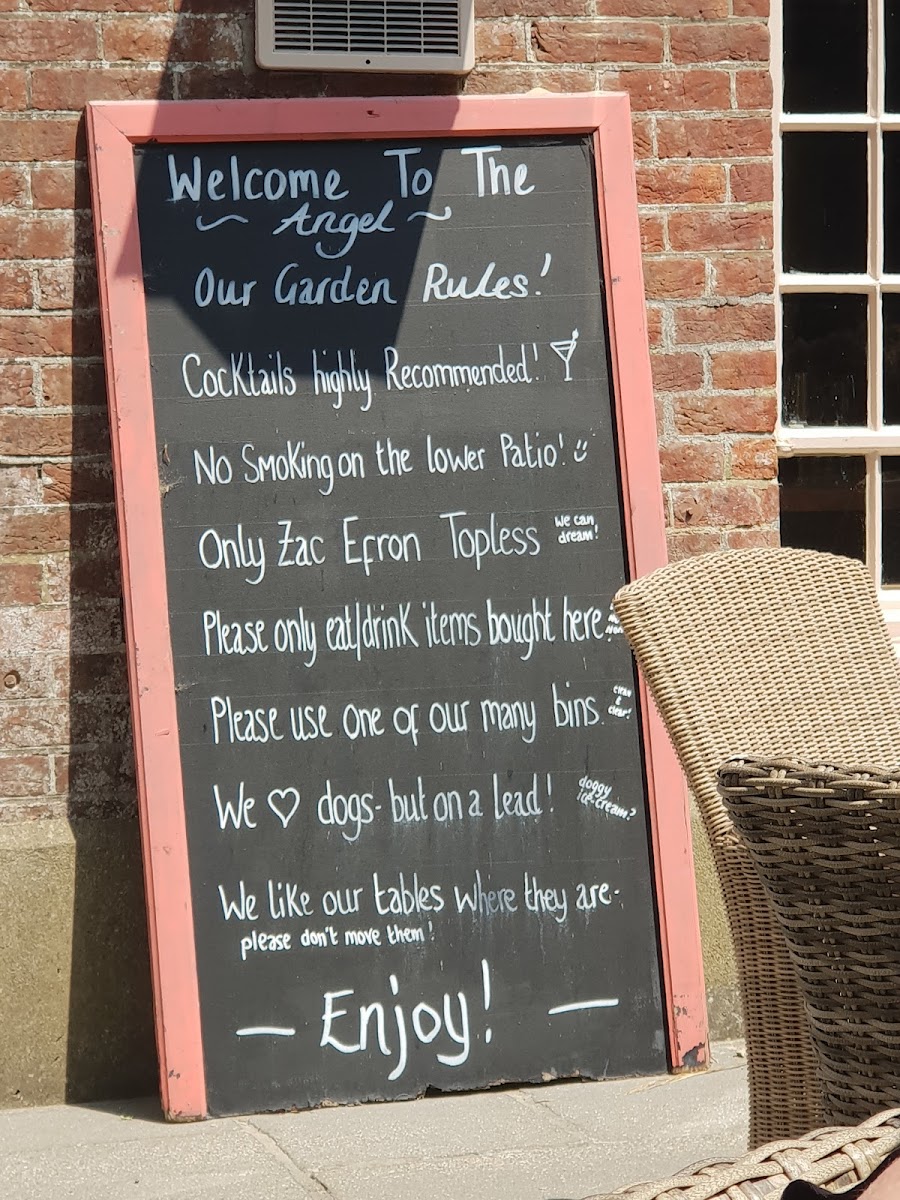 Welcome To The
~ Angel ~
Our Garden Rules!
Cocktails highly Recommended!
No Smoking on the lower Patio! :)
Only Zac Efron Topless We can dream!
Please only eat/drink items bought here.
Please use one of our many bins. clean & clear!
We ♡ dogs - but on a lead! doggy ice-cream?
We like our tables where they are -
please don't move them!
— Enjoy! —